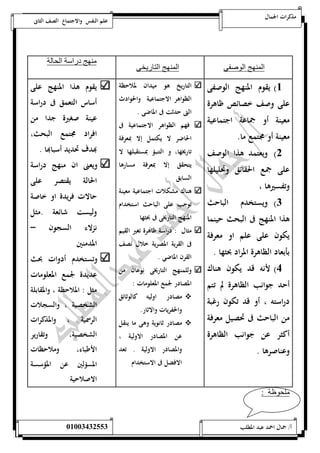 مذكرات الجمال
علم النفس والاجتماع الصف الثانى
المنهج الوصفى
1) يقوم المنهج الوصفى
على وصف خصائص ظاهرة
معينة أو جماعة اجتماعية
معينة أو مجتمع ما.
2) ويعتمد هذا الوصف
على جمع الحقائق وتحليلها
وتفسيرها ،
3) ويستخدم الباحث
هذا المنهج فى البحث حينما
يكون على علم او معرفة
بأبعاد الظاهرة المراد بحثها .
4) لأنه قد يكون هناك
أحد جوانب الظاهرة لم تتم
دراسته ، أو قد تكون رغبة
من الباحث فى تحصيل معرفة
أكثر عن جوانب الظاهرة
وعناصرها .
المنهج التاريخى
التاريخ هو ميدان لملاحظة
الظواهر الاجتماعية والحوادث
التى حدثت فى الماضى .
فهم الظواهر الاجتماعية فى
الحاضر لا يكتمل إلا بمعرفة
تاريخها، و التنبؤ بمستقبلها لا
يتحقق إلا بمعرفة مسارها
السابق
هناك مشكلات اجتماعية معينة
توجب على الباحث استخدام
المنهج التاريخى فى بحثها
مثال : دراسة ظاهرة تغير القيم
فى القرية المصرية خلال نصف
القرن الماضى .
وللمنهج التاريخى نوعان من
المصادر لجمع المعلومات :
مصادر اوليه كالوثائق
والحفريات والاثار.
مصادر ثانوية وهى ما ينقل
عن المصادر الاولية ،
والمصادر الاولية . تعد
الافضل فى الاستخدام
منهج دراسة الحالة
يقوم هذا المنهج على
أساس التعمق فى دراسة
عينة صغيرة جدا من
افراد مجتمع البحث،
بهدف تحديد أسبابها .
ويعنى ان منهج دراسة
الحالة يقتصر على
حالات فريدة او خاصة
وليست شائعة .مثل
نزلاء السجون –
المدمنين
وتستخدم أدوات بحث
عديدة لجمع المعلومات
مثل : الملاحظة ، والمقابلة
الشخصية ، والسجلات
الرسمية ، والمذكرات
الشخصية، وتقارير
الأطباء، وملاحظات
المسؤلين عن المؤسسة
الاصلاحية
ملحوظة :
أ/ جمال احمد عبد المطلب
01003432553